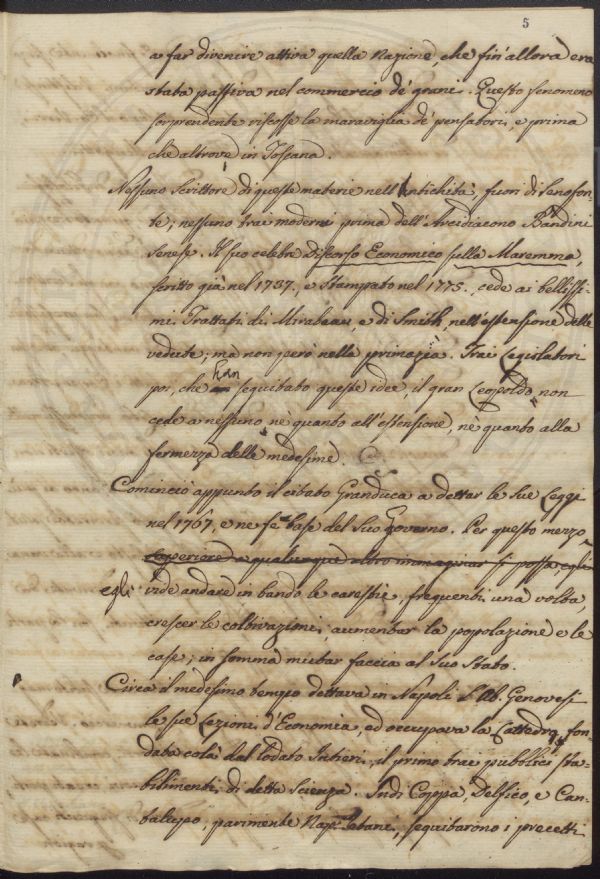 5
a far divenire attiva quella Nazione, che fin'allora era
stata passiva nel commercio de' grani. Questo fenomeno
sorprendente riscosse la maraviglia de' pensatori, e prima
che altrove in Toscana.
Nessuno Scrittore di queste materie nell'Antichità, fuori di Senofon-
te; nessuno trai moderni prima dell'Arcidiacono Bandini
Senese. Il suo celebre Discorso Economico sulla Maremma,
scritto già nel 1737, e stampato nel 1775., cede ai bellissi-
mi Trattati di Mirabeau, e di Smith, nell'estensione delle
vedute; ma non però nella primazia. Trai Legislatori
poi, che han seguitato queste idee, il gran Leopoldo non
cede a nessuno nè quanto all'estensione, nè quanto alla
fermezza delle medesime.
Cominciò appunto il citato Granduca a dettar le sue Leggi
nel 1767, e ne fe' base del suo Governo. Per questo mezzo
superiore a qualunque altro immaginar si possa, egli
egli vide andare in bando le carestie, frequenti una volta,
crescer le coltivazioni, aumentar la popolazione e le
case; in somma mutar faccia al suo Stato.
Circa il medesimo tempo dettava in Napoli l'Ab. Genovesi
le sue Lezioni d'Economia, ed occupava la Cattedra, fon-
data colà dal lodato Intieri, il primo trai pubblici sta-
bilimenti di detta Scienza. Indi Coppa, Delfico, e Can-
talupo, parimente Napoletani, seguitarono i precetti